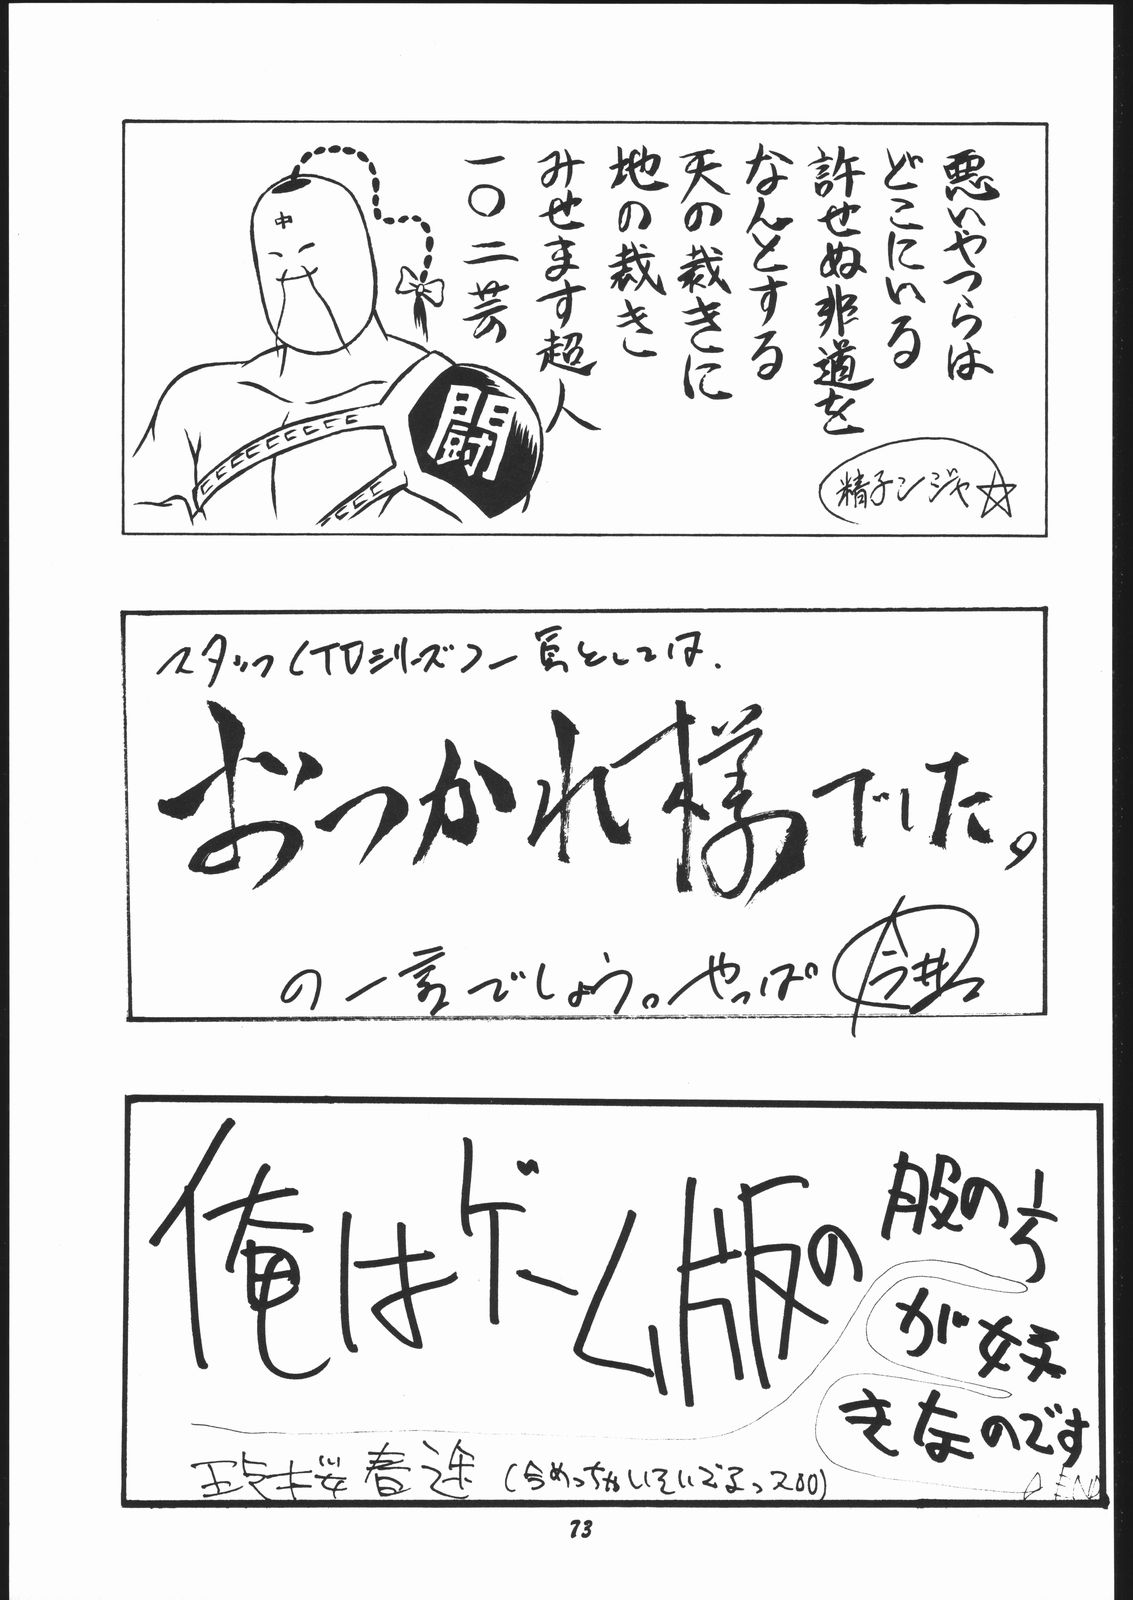 悪いやつらは
どこにいる
許せぬ非道を
なんとする
天の裁きに
地の裁き
みせます超人
一〇二芸
中
闘
精子ンジャ☆
スタッフ(TDシリーズ)一員としては、
おつかれ様でした。
の一言でしょう。やっぱ
今井
俺はゲーム版の
服の方
が好
きなのです
桜春途
END
73